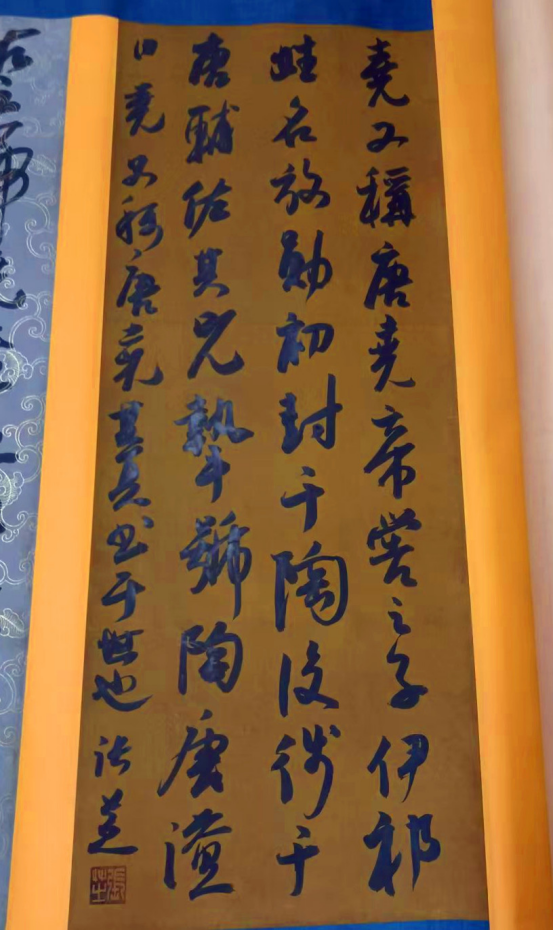 堯又稱唐堯帝嚳之子伊祁
姓名放勛初封于陶後徙于
唐輔佐其兄摯號陶唐謚
曰堯又稱唐堯其书于世也 張芝
張芝